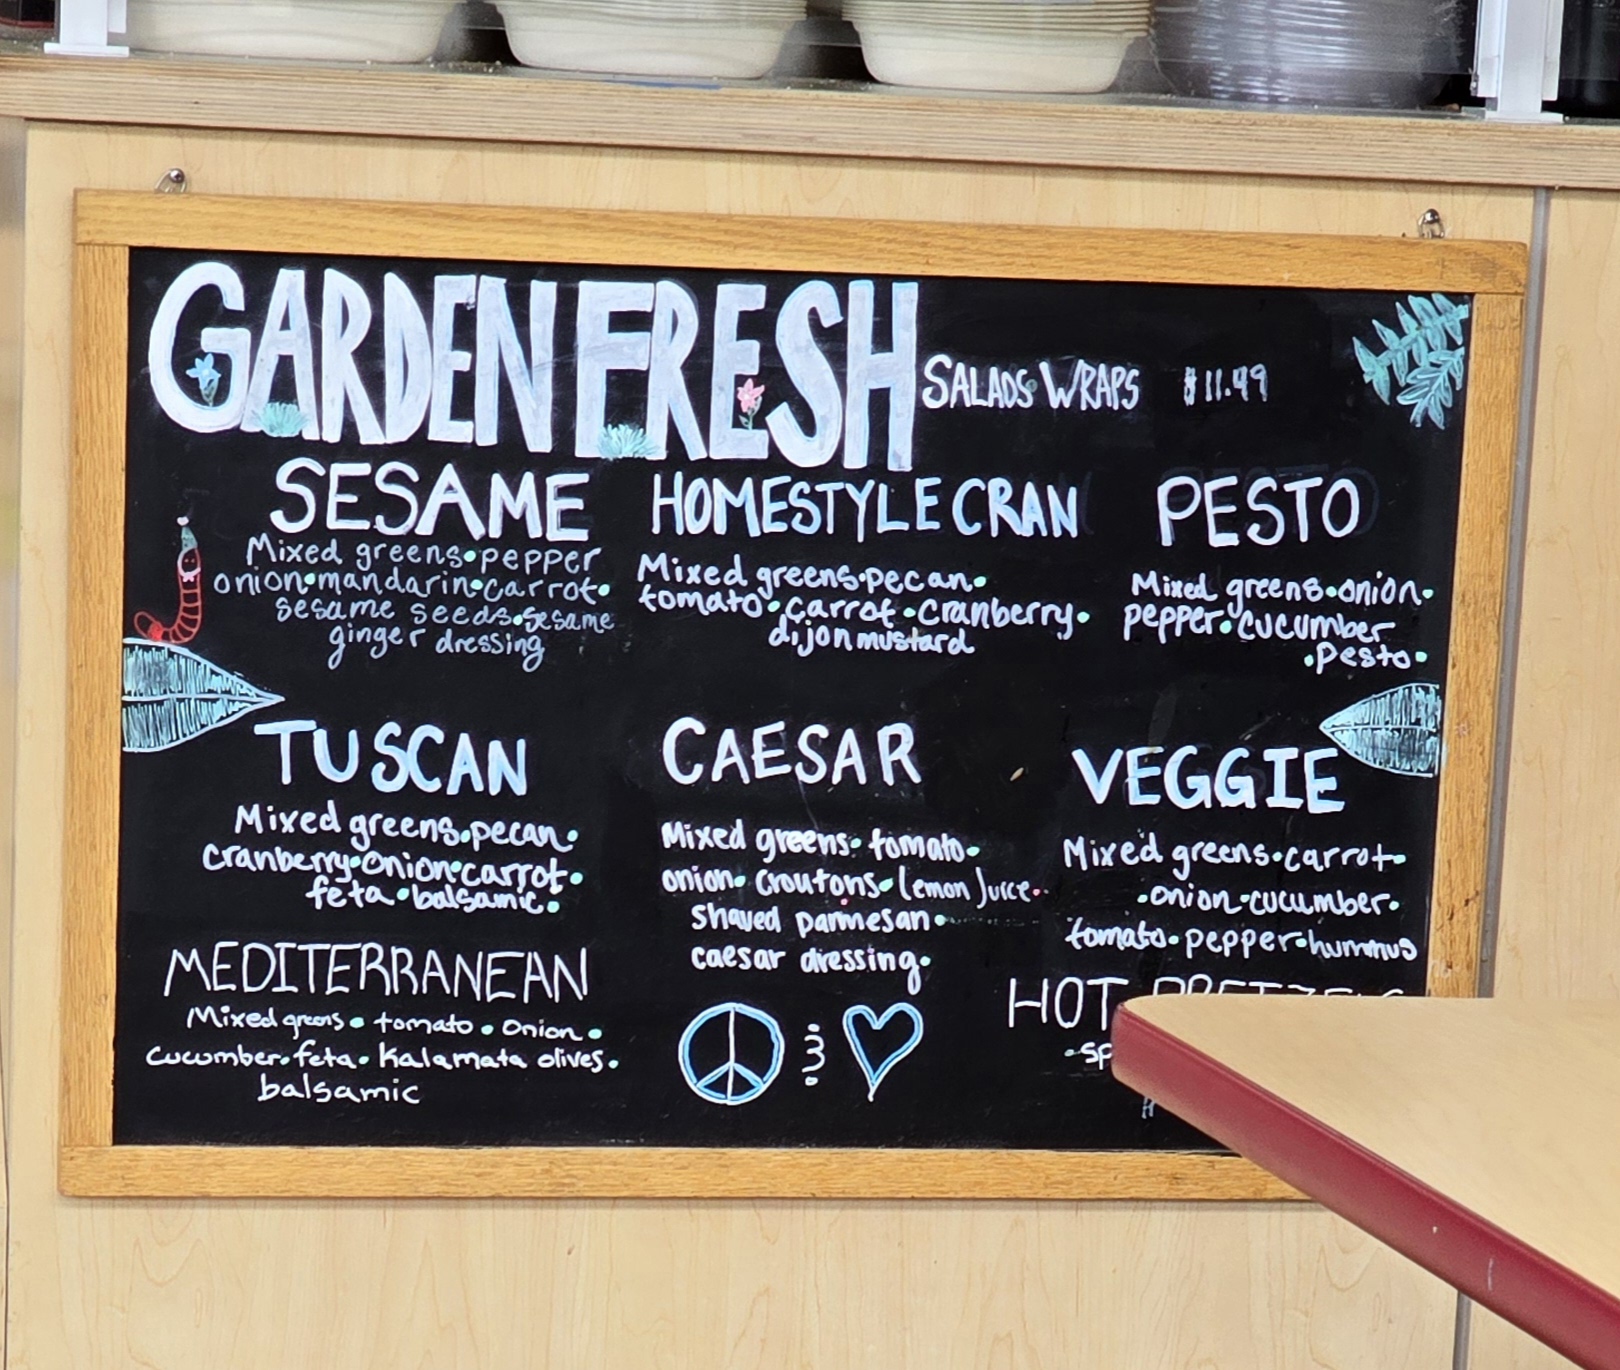 GARDEN FRESH SALADS WRAPS $11.49
SESAME
Mixed greens•pepper
onion•mandarin•carrot•
sesame seeds•sesame
ginger dressing
HOMESTYLE CRAN
Mixed greens•pecan•
tomato•carrot•cranberry•
dijon mustard
PESTO
Mixed greens•onion•
pepper•cucumber
•pesto•
TUSCAN
Mixed greens•pecan•
cranberry•onion•carrot•
feta•balsamic•
CAESAR
Mixed greens•tomato•
onion•croutons•lemon juice•
shaved parmesan•
caesar dressing•
VEGGIE
Mixed greens•carrot•
•onion•cucumber•
tomato•pepper•hummus
MEDITERRANEAN
Mixed greens•tomato•onion•
cucumber•feta•kalamata olives•
balsamic
HOT PRETZELS